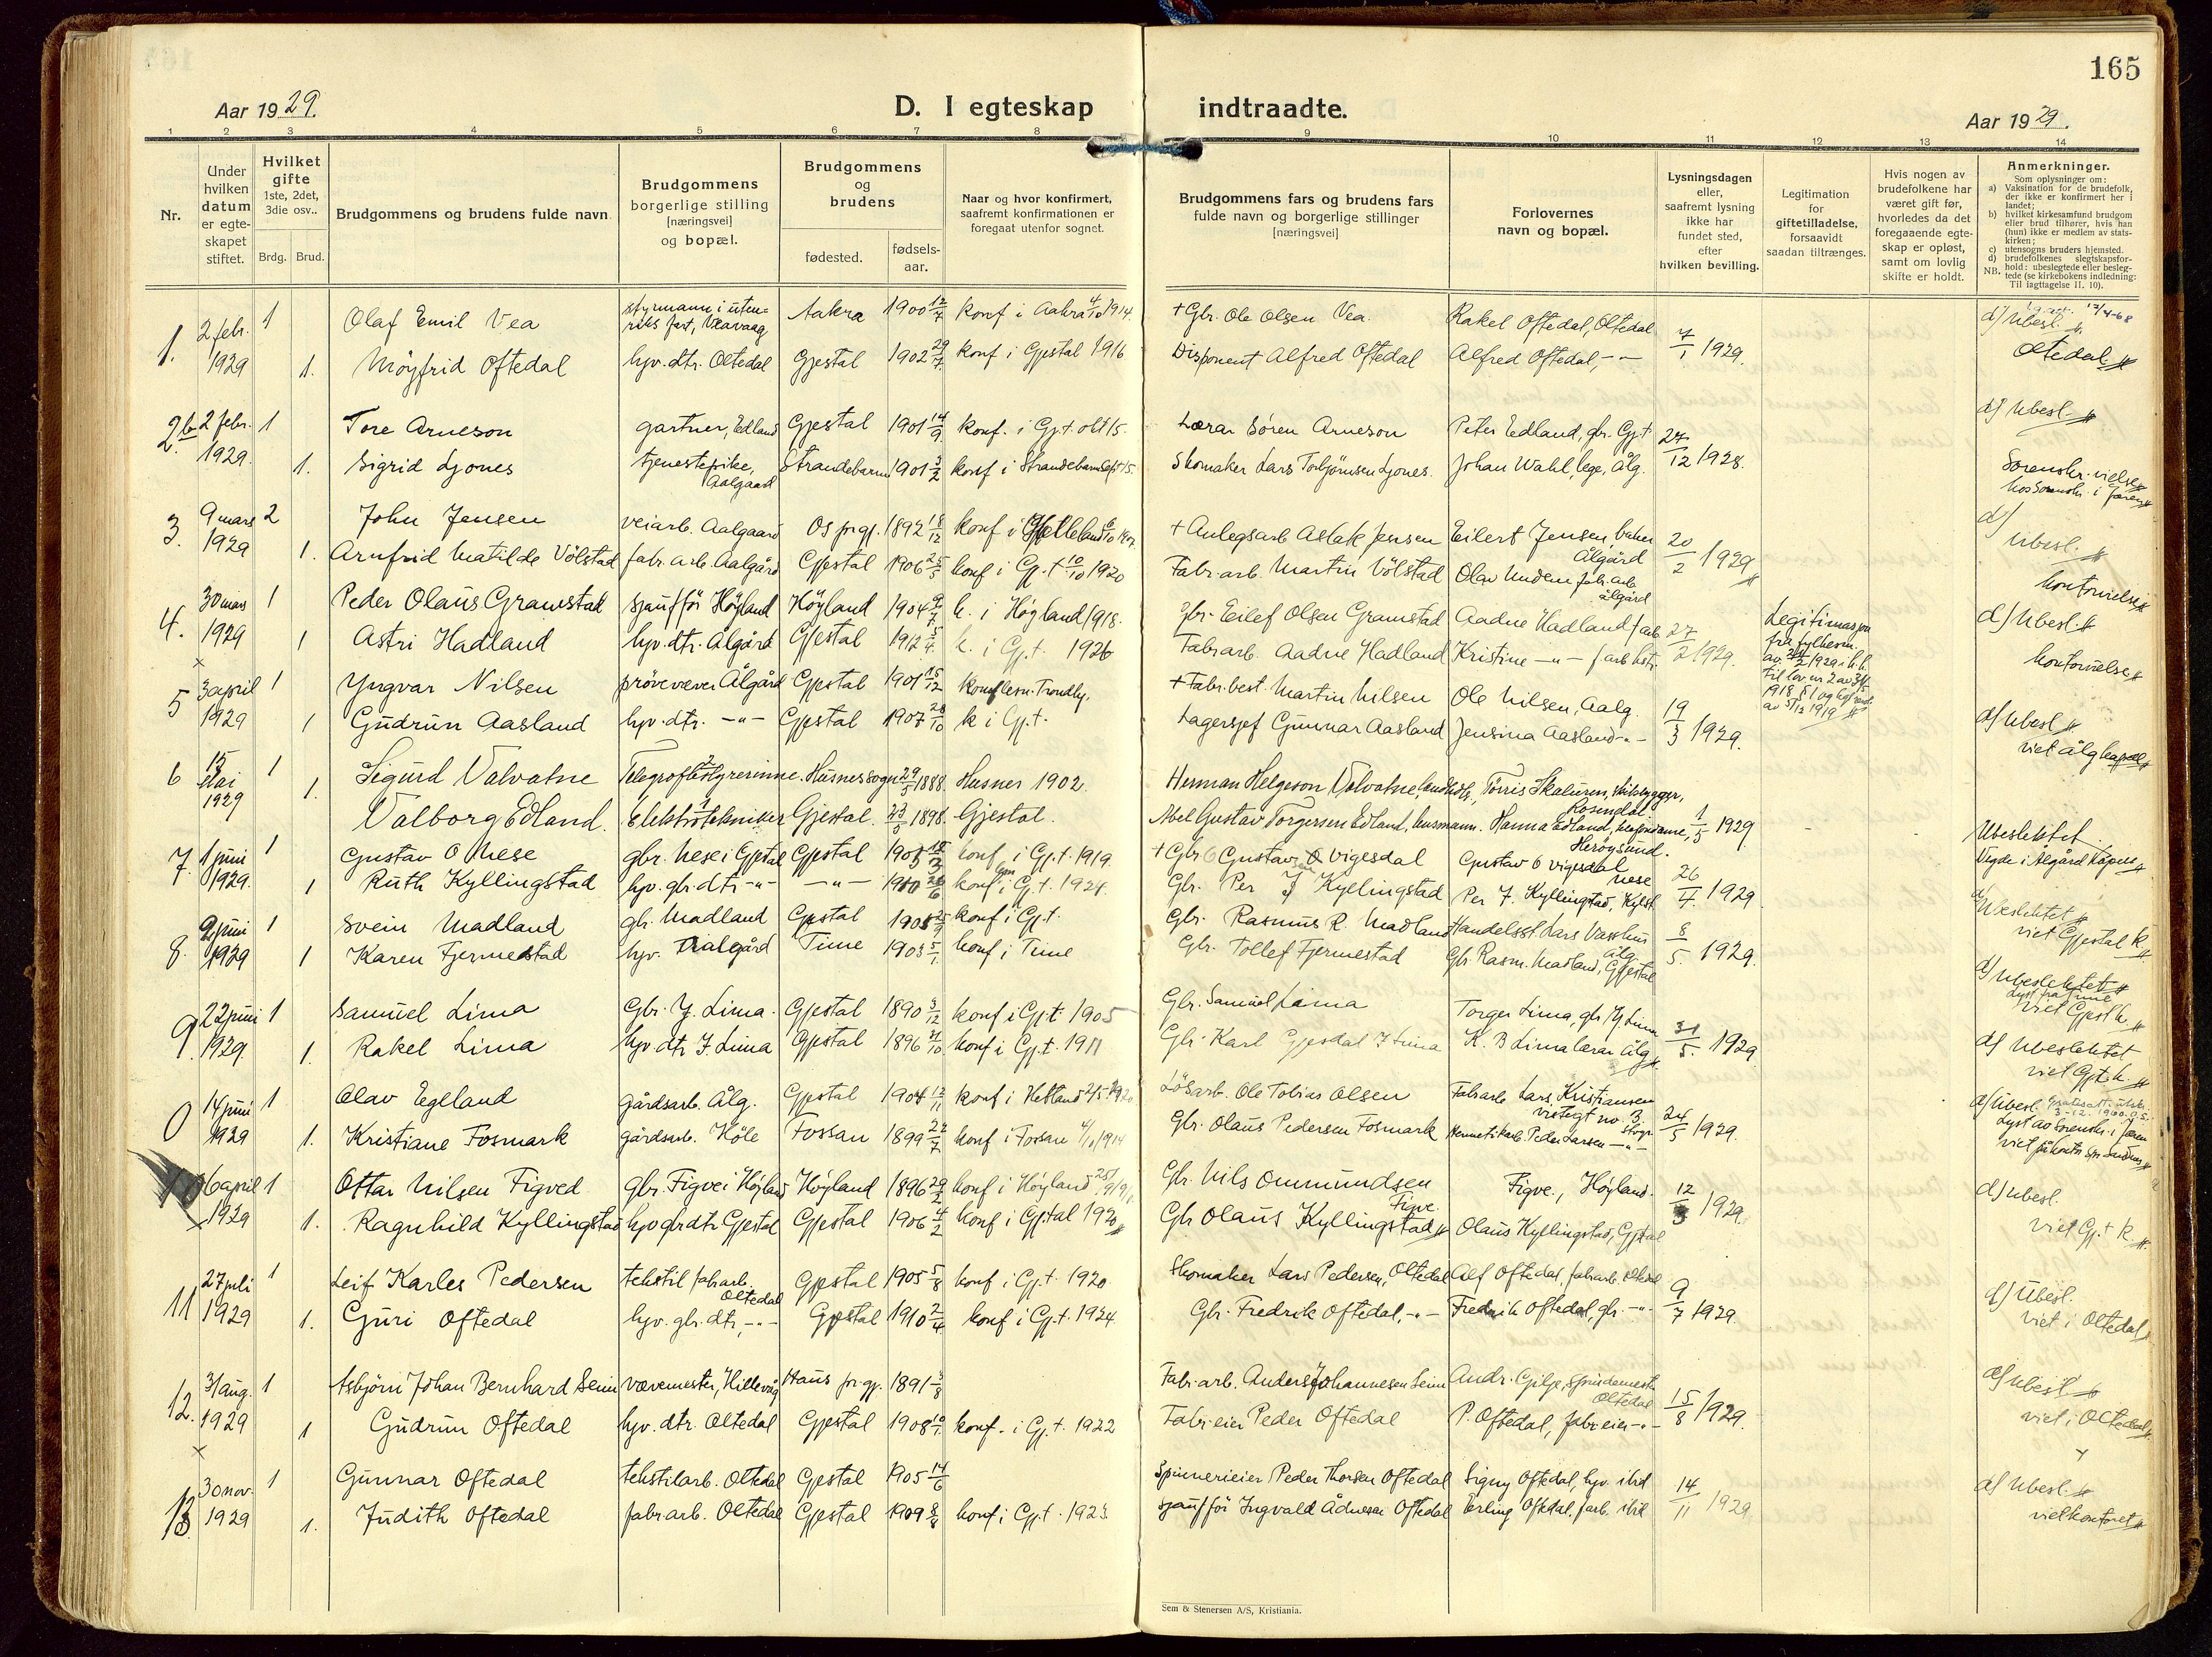 165
Aar 1929.
D. I egteskap indtraadte.
Aar 1929.
1 2 3 4 5 6 7 8 9 10 11 12 13 14
Nr.
Under hvilken datum er egte-skapet stiftet.
Hvilket gifte 1ste, 2det, 3die osv..
Brdg. Brud.
Brudgommens og brudens fulde navn
Brudgommens borgerlige stilling [næringsvei] og bopæl.
Brudgommens og brudens
fødested. fødsels-aar.
Naar og hvor konfirmert, saafremt konfirmationen er foregaat utenfor sognet.
Brudgommens fars og brudens fars fulde navn og borgerlige stillinger [næringsvei]
Forlovernes navn og bopæl.
Lysningsdagen eller, saafremt lysning ikke har fundet sted, efter hvilken bevilling.
Legitimation for giftetilladelse, forsaavidt saadan tiltrænges.
Hvis nogen av brudefolkene har været gift før, hvorledes da det foregaaende egte-skap er opløst, samt om lovlig skifte er holdt.
Anmerkninger.
Som oplysninger om:
a) Vaksination for de brudefolk, der ikke er konfirmert her i landet;
b) hvilket kirkesamfund brudgom eller brud tilhører, hvis han (hun) ikke er medlem av stats-kirken;
c) utensogns bruders hjemsted.
d) brudefolkenes slegtskapsfor-hold: ubeslegtede eller besleg-tede (se kirkebokens indledning:
NB. Til iagttagelse II. 10).
1. 2 febr. 1 Olaf Emil Vea styrmann i uten-riks fart, Veavaag Aakra 1900 12/7 konf i Aakra 4/10 1914. + Gbr. Ole Olsen Vea. Rakel Oftedal, Oltedal 7/1 1929. d) Ubesl.
1929 1. Möyfrid Oftedal hjv. dtr. Oltedal Gjestal 1902 29/7 konf i Gjestal 1916 Disponent Alfred Oftedal Alfred Oftedal, -"- Oltedal
2. 2 febr. 1 Tore Arneson gartner, Edland Gjestal 1901 14/9 konf. i Gj.t. okt 15. Lærar Sören Arneson Peter Edland, gbr. Gj.t 27/12 1928. d) Ubesl.
1929. 1. Sigrid Ljones tjenestepike, Aalgaard Strandebarm 1901 3/2 konf i Strandebarm Sept 15. Skomaker Lars Torbjörnsen Ljones. Johan Wahl, lege, Ålg. Sorenskr. vielse hos Sorenskr. i Jæren
3. 9 mars 2 John Jensen veiarb. Aalgaard Os prgj. 1892 18/12 + Anlegsarb Aslak Jensen Eilert Jensen baker Ålgård 20/2 1929 d) Ubesl.
1929 1. Arnfrid Matilde Völstad fabr. arb. Aalgård Gjestal 1906 25/5 konf i Gj.t 10/10 1920 Fabr. arb. Martin Völstad Olav Undem fabr. arb. ålgård kontorvielse
4. 30 mars 1 Peder Olaus Gramstad sjaufför Höyland Höyland 1904 9/7 k. i Höyland 1918. Gbr. Eilef Olsen Gramstad Aadne Hadland f arb 27/2 1929. d) Ubesl.
1929 1 Astri Hadland hjv. dtr. Ålgård Gjestal 1912 5/4 k. i Gj.t. 1926 Fabr. arb. Aadne Hadland Kristine -"- kontorvielse
Legitimasjon fra fylkesm. av 1929 i h.h. til lov nr 2 av 31/5 1918 § 1 av 5/12 1919
5 3 april 1 Yngvar Nilsen prövevæver Ålgård Gjestal 1901 15/12 + Fabr. best. Martin Nilsen Ole Nilsen, Aalg. 19/3 1929. d) Ubesl
1929 1 Gudrun Aasland hjv. dtr. -"- Gjestal 1907 28/10 k i Gj.t. Lagersjef Gunnar Aasland Jensina Aasland -"- viet ålg kapel
6 15 Mai 1 Sigurd Valvatne Telegrafbestyrerinne. Husnes sogn 29/5 1888. Husnes 1902. Herman Helgeson Valvatne, Torris Skaluren, skibbygger, Rosendal. 1/5 1929
1929 1. Valborg Edland. Elektrotekniker Gjestal. 23/5 1898. Gjestal. Abel Gustav Torgersen Edland, husmann. Hanna Edland, Heröysund. Ubeslektet Vigde i Ålgård Kapell
7. 1 juni 1 Gustav O Nese gbr. Nese i Gjestal Gjestal konf i Gj.t. 1919. + Gbr Gustav O Vigesdal Gustav O Vigesdal Nese 26/4 1929
1929. 1 Ruth Kyllingstad hjv. gbr. dtr -"- -"- 1910 konf i Gj.t. 1924. Gbr. Per J Kyllingstad Per J. Kyllingstad, Kylst d) Ubeslektet viet Gjestal k.
8. 9 juni 1 Svein Madland gbr. Madland Gjestal konf i Gj.t. Gbr. Rasmus R. Madland Handelsst. Lars Vasshus Ålg. 8/5. 1929. d) Ubeslektet
1929 1 Karen Fjermestad hjv. Aalgård Time 1903 5/1. konf i Time Gbr. Tollef Fjermestad Gbr. Rasm. Madland, Gjestal lyst fra Time viet Gjest k
9. 22 juni 1 Samuel Lima Gbr. Y. Lima. Gjestal 1890 3/12 konf i Gj.t. 1905 Gbr. Samuel Lima Torger Lima, gbr Y Lima 31/5. 1929 d) Ubeslektet
1929. 1. Rakel Lima hjv. dtr I. Lima Gjestal 1896 31/10 konf i Gj.t. 1911 Gbr. Karl Gjesdal I Lima K. B Lima lærar Ålg viet Gj.t. k.
14 juni 1 Olav Egeland gårdsarb. Ålg. Gjestal 1904 12/11 konf i Hetland Lösarb. Ole Tobias Olsen Fabrarb Lars Kristiansen 24/5 1929. d) Ubesl.
1929 1. Kristiane Fosmark gårdsarb. Höle Fossan 1899 22/7 konf i Fossan 1914 Gbr. Olaus Pedersen Fosmark Hermetikarb. Peder Larsen -"- Lyst av Sorenskr. i Jæren
6 april 1 Ottar Nilsen Figved gbr. Figvei Höyland Höyland 1896 29/2 konf i Höyland Gbr. Nils Ommundsen Figve. Figve., Höyland. 12/3 1929. d) Ubesl.
1929 1. Ragnhild Kyllingstad hjv gbrdtr Gjestal Gjestal 1906 4/2 konf i Gjstal 1920 Gbr Olaus Kyllingstad Olaus Kyllingstad, Gjstal viet Gj.t k.
11 27 juli 1 Leif Karles Pedersen tekstil fabrarb. Oltedal Gjestal 1905 5/8 konf i Gj.t. 1920 Skomaker Lars Pedersen, Oltedal Alf Oftedal, fabrarb. Oltedal 9/7 1929. d) Ubesl.
1929 1. Guri Oftedal hjv. gbr. dtr, -"- Gjestal 1910 2/4 konf i Gj.t. 1924 Gbr. Fredrik Oftedal, -"- Fredrik Oftedal, gbr. -"- viet i Oltedal
12. 31 aug. 1 Asbjörn Johan Bernhard Seim vævemester, Hillevåg Haus pr.gj. 1891 3/8 Fabr. arb. Anders Johannesen Seim Andr. Gilje, spindemester Oltedal 15/8 1929. d) Ubesl
1929 1 Gudrun Oftedal hjv. dtr. Oltedal Gjestal 1908 konf. i Gj.t. 1922 Fabr. eier Peder Oftedal P. Oftedal, fabr. eier -"- viet i Oltedal
13. 30 nov. 1 Gunnar Oftedal tekstilarb. Oltedal Gjestal 1905 14/6 Spinnerieier Peder Thorsen Oftedal Signy Oftedal, hjv. ibid 14/11 1929 d) Ubesl.
1929 1. Judith Oftedal fabr. arb. Oltedal Gjestal 1909 konf i Gj.t. 1923. sjaufför Ingvald Ådnesen Oftedal Erling Oftedal, farb. ibid viet kontoret
Sem & Stenersen A/S, Kristiania.